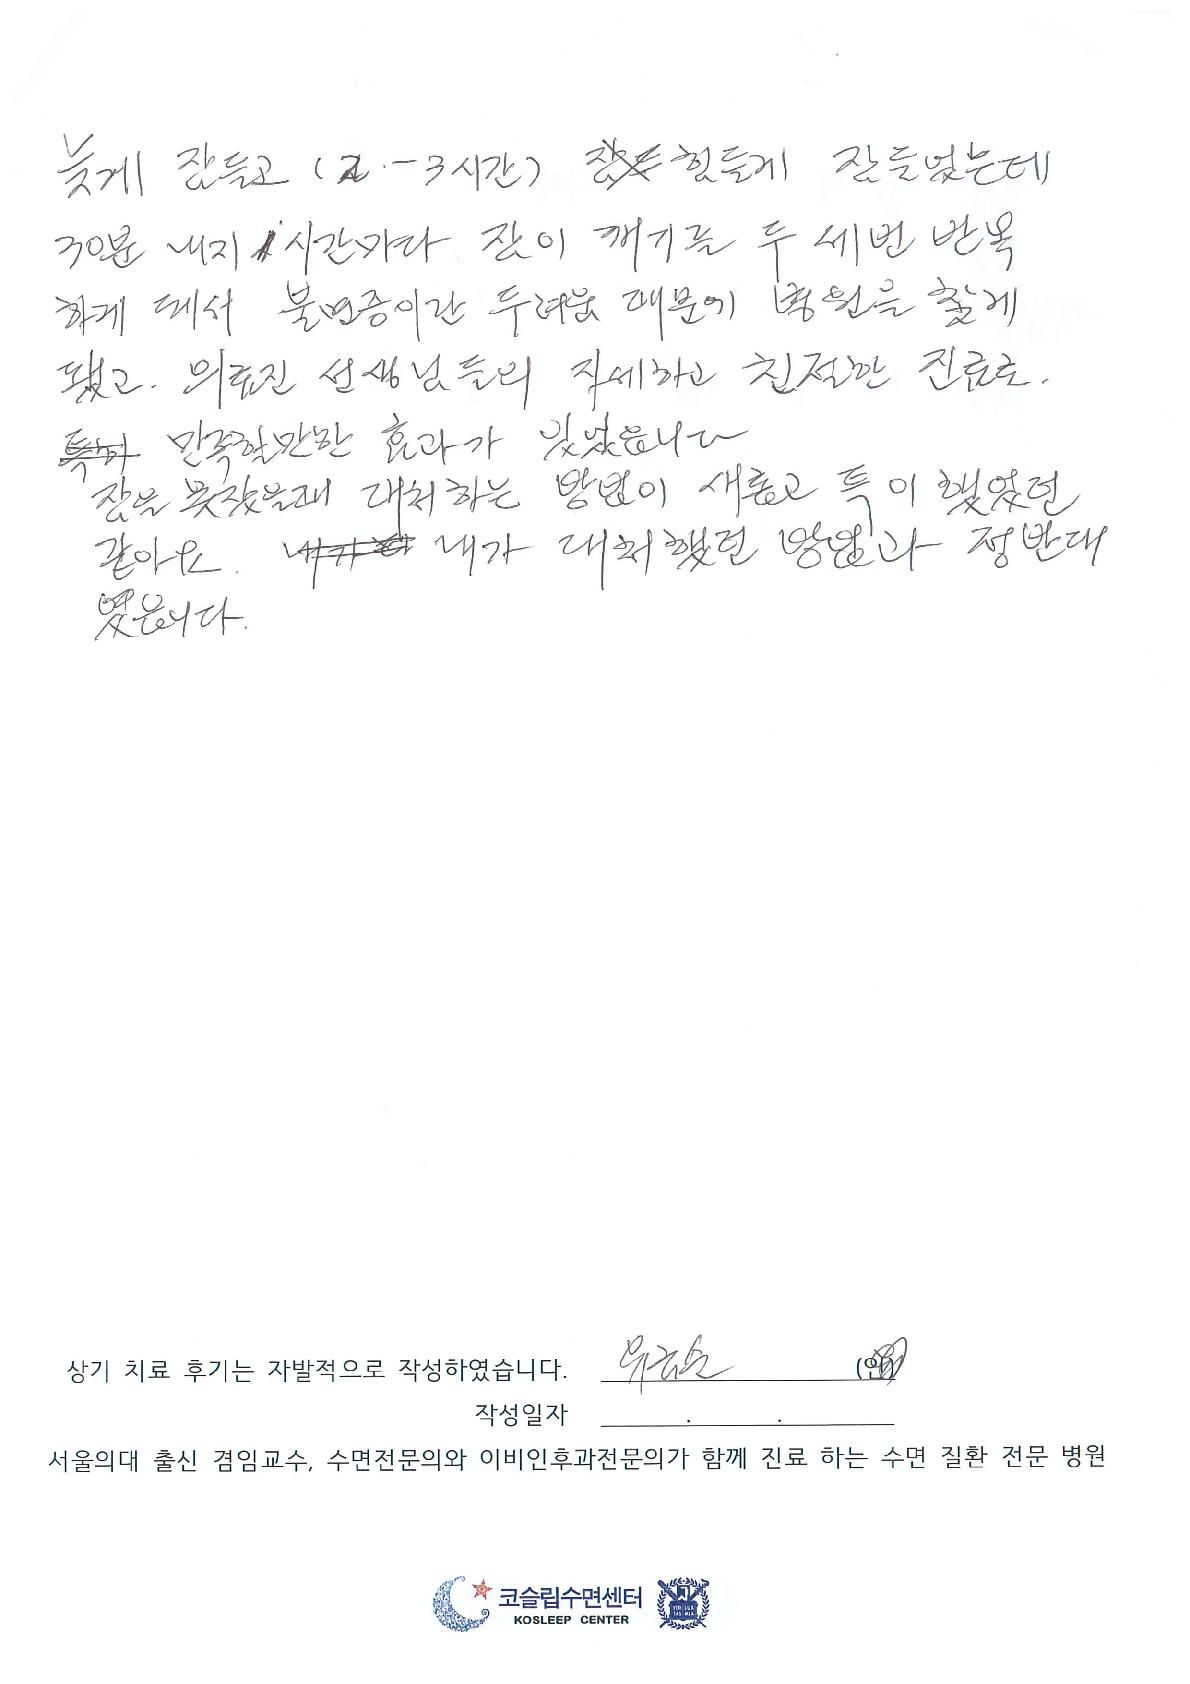 늦게 잠들고 (2 - 3시간) 힘들게 잠들었는데
30분 내지 1시간마다 잠이 깨기를 두 세번 반복
하게 돼서 불면증이란 두려움 때문에 병원을 찾게
됐고. 의료진 선생님들의 자세하고 친절한 진료로.
만족할만한 효과가 있었읍니다
잠을 못잤을때 대처하는 방법이 새롭고 특이했었던
같아요. 내가 대처했던 방법과 정반대
였읍니다.
상기 치료 후기는 자발적으로 작성하였습니다. (인)
작성일자 . .
서울의대 출신 겸임교수, 수면전문의와 이비인후과전문의가 함께 진료 하는 수면 질환 전문 병원
코슬립수면센터
KOSLEEP CENTER